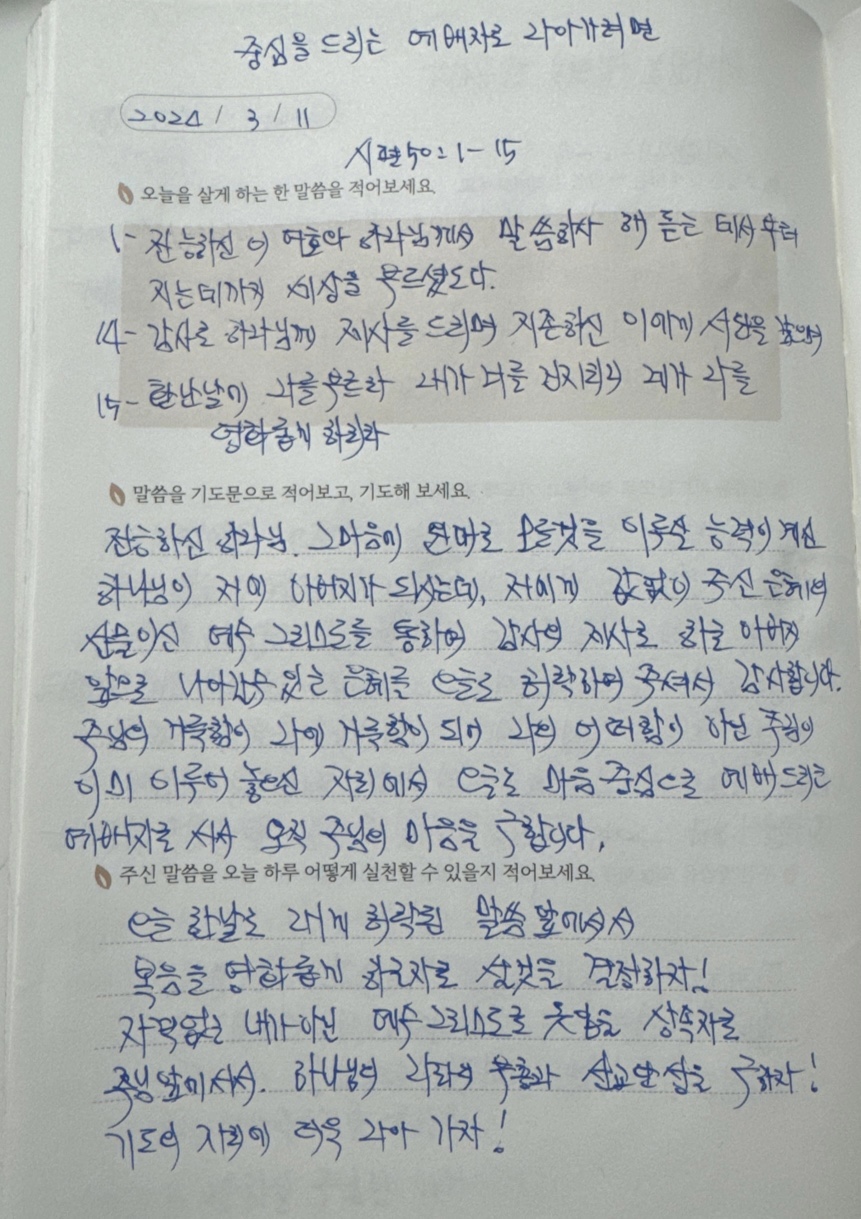 중심을 드리는 예배자로 나아가려면
2024 / 3 / 11
시편 50:1-15
오늘을 살게 하는 한 말씀을 적어보세요.
1- 전능하신 이 여호와 하나님께서 말씀하사 해 돋는 데서부터
지는데까지 세상을 부르셨도다.
14- 감사로 하나님께 제사를 드리며 지존하신 이에게 서원을 갚으며
15- 환난날에 나를 부르라 내가 너를 건지리니 네가 나를
영화롭게 하리라
말씀을 기도문으로 적어보고, 기도해 보세요.
전능하신 하나님. 그마음에 원대로 모든것을 이루실 능력이 계신
하나님이 저의 아버지가 되시는데, 저에게 값없이 주신 은혜의
선물이신 예수 그리스도를 통하여 감사의 제사로 하나 아버지
앞으로 나아갈수 있는 은혜를 오늘도 허락하여 주셔서 감사합니다.
주님의 거룩함이 나의 거룩함이 되어 나의 어떠함이 아닌 주님이
이미 이루어 놓으신 자리에서 오늘도 마음 중심으로 예배드리는
예배자로 서서 오직 주님의 마음을 구합니다.
주신 말씀을 오늘 하루 어떻게 실천할 수 있을지 적어보세요.
오늘 한날도 내게 허락된 말씀 앞에서서
복음을 영화롭게 하는자로 살것을 결정하자!
자격없는 내가 아닌 예수 그리스도로 옷입은 상속자로
주님 앞에 서서. 하나님의 나라의 부흥과 선교완성을 구하자!
기도의 자리에 더욱 나아 가자!